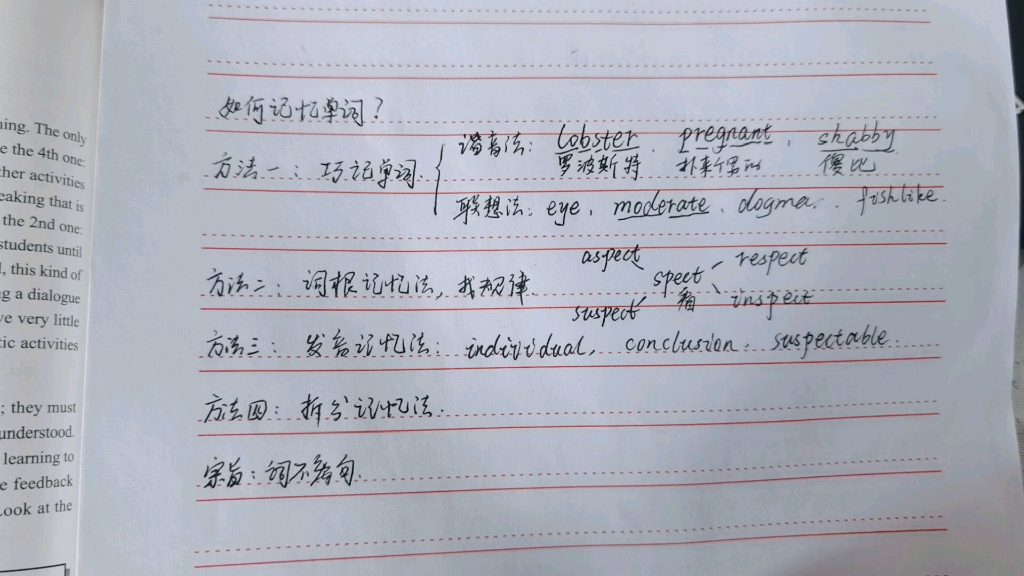 ning. The only
e the 4th one:
ther activities
eaking that is
the 2nd one:
students until
l, this kind of
ng a dialogue
ve very little
tic activities
; they must
understood.
learning to
e feedback
Look at the
如何记忆单词?
方法一:巧记单词. 谐音法: lobster. pregnant. shabby
罗波斯特 扑来个男的 傻比
联想法: eye. moderate. dogma. fishlike.
方法二:词根记忆法, 找规律. aspect suspect spect 看 respect inspect
方法三:发音记忆法: individual, conclusion, suspectable.
方法四:拆分记忆法.
宗旨:词不离句.